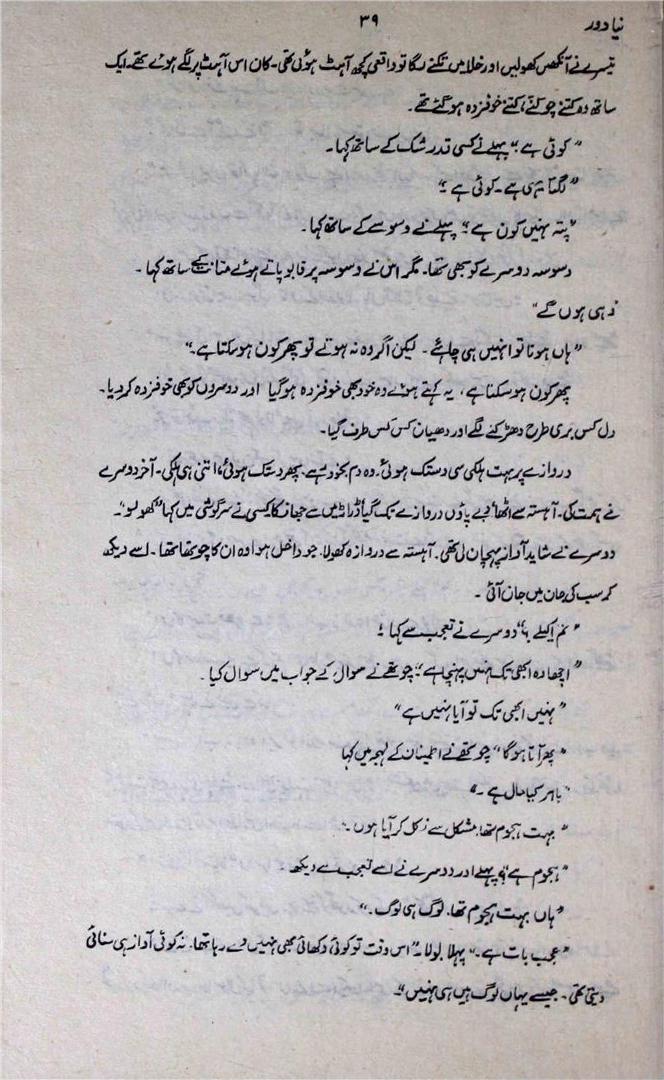 نیا دور
۳۹
تیسرے نے آنکھیں کھولیں اور خلا میں تکنے لگا تو واقعی کچھ آہٹ ہوئی تھی۔ کان اس آہٹ پر لگے ہوئے تھے۔ ایک
ساتھ وہ کتنے چوکنے، کتنے خوفزدہ ہو گئے تھے۔
"کوئی ہے؟" پہلے نے کسی قدر شک کے ساتھ کہا۔
"لگتا یہی ہے۔ کوئی ہے؟"
"پتہ نہیں کون ہے؟" پہلے نے وسوسے کے ساتھ کہا۔
وسوسہ دوسرے کو بھی تھا۔ مگر اس نے وسوسہ پر قابو پاتے ہوئے متانت کے ساتھ کہا۔
"وہی ہوں گے"
"ہاں ہونا تو انہیں ہی چاہئے۔ لیکن اگر وہ نہ ہوئے تو پھر کون ہو سکتا ہے۔"
پھر کون ہو سکتا ہے، یہ کہتے ہوئے وہ خود بھی خوفزدہ ہو گیا اور دوسروں کو بھی خوفزدہ کر دیا۔
دل کس بری طرح دھڑکنے لگے اور دھیان کس کس طرف گیا۔
دروازے پر بہت ہلکی سی دستک ہوئی۔ وہ دم بخود رہے۔ پھر دستک ہوئی، اتنی ہی ہلکی۔ آخر دوسرے
نے ہمت کی۔ آہستہ سے اٹھا، دبے پاؤں دروازے تک گیا، دراڑ میں سے جھانکا کسی نے سرگوشی میں کہا "کھولو"۔
دوسرے نے شاید آواز پہچان لی تھی۔ آہستہ سے دروازہ کھولا، جو داخل ہوا وہ ان کا چوتھا تھا۔ اسے دیکھ
کر سب کی جان میں جان آئی۔
"تم اکیلے؟" دوسرے نے تعجب سے کہا؛
"اچھا وہ ابھی تک نہیں پہنچا ہے؟" چوتھے نے سوال کے جواب میں سوال کیا۔
"نہیں ابھی تک تو آیا نہیں ہے"
"پھر آتا ہوگا" چوتھے نے اطمینان کے لہجہ میں کہا
"باہر کیا حال ہے۔"
"بہت ہجوم تھا، مشکل سے نکل کر آیا ہوں۔"
"ہجوم ہے؟" پہلے اور دوسرے نے اسے تعجب سے دیکھا
"ہاں بہت ہجوم تھا، لوگ ہی لوگ۔"
"عجب بات ہے۔" پہلا بولا۔ "اس وقت تو کوئی دکھائی بھی نہیں دے رہا تھا۔ نہ کوئی آواز ہی سنائی
دیتی تھی۔ جیسے یہاں لوگ ہیں ہی نہیں"۔